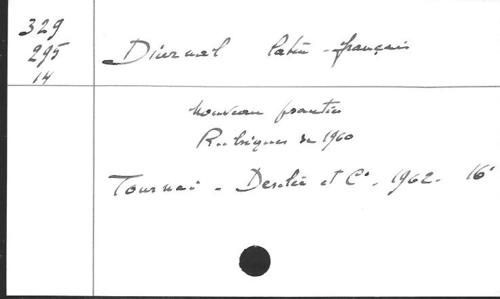 329
295
14
Diurnal latin-français
Nouveau psautier
Rubriques de 1960
Tournai - Desclée et Cie. 1962. 16°